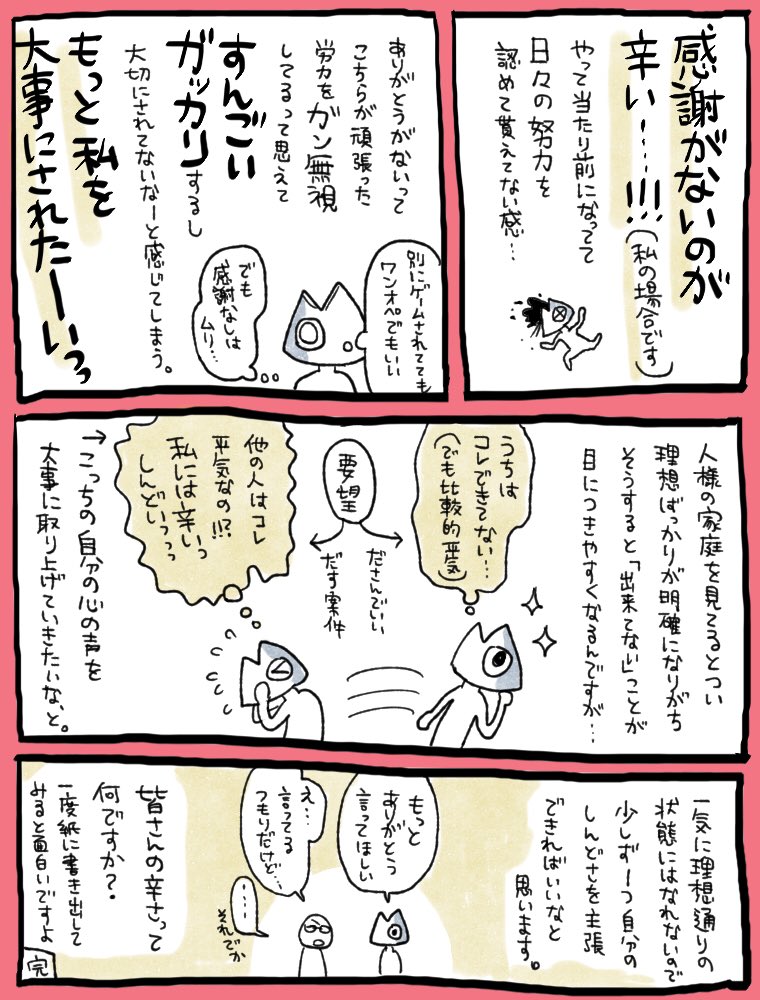 感謝がないのが
辛い……!!!
(私の場合です)
やって当たり前になってて
日々の努力を
認めて貰えてない感…
ありがとうがないって
こちらが頑張った
労力をガン無視
してるって思えて
すんごい
ガッカリするし
大切にされてないなーと感じてしまう。
もっと私を
大事にされたーいっっ
別にゲームされてても
ワンオペでもいい
でも
感謝なしは
ムリ…
人様の家庭を見てるとつい
理想ばっかりが明確になりがち
そうすると「出来てない」ことが
目につきやすくなるんですが…
うちは
コレできてない…
(でも比較的平気)
要望
ださんでいい
だす案件
他の人はコレ
平気なの!!?
私には辛いっ
しんどいっっっ
→こっちの自分の心の声を
大事に取り上げていきたいな、と。
一気に理想通りの
状態にはなれないので
少しずーつ自分の
しんどさを主張
できればいいなと
思います。
もっと
ありがとう
言ってほしい
え…
言ってる
つもりだけど…
……
それでか
皆さんの辛さって
何ですか?
一度紙に書き出して
みると面白いですよ
完